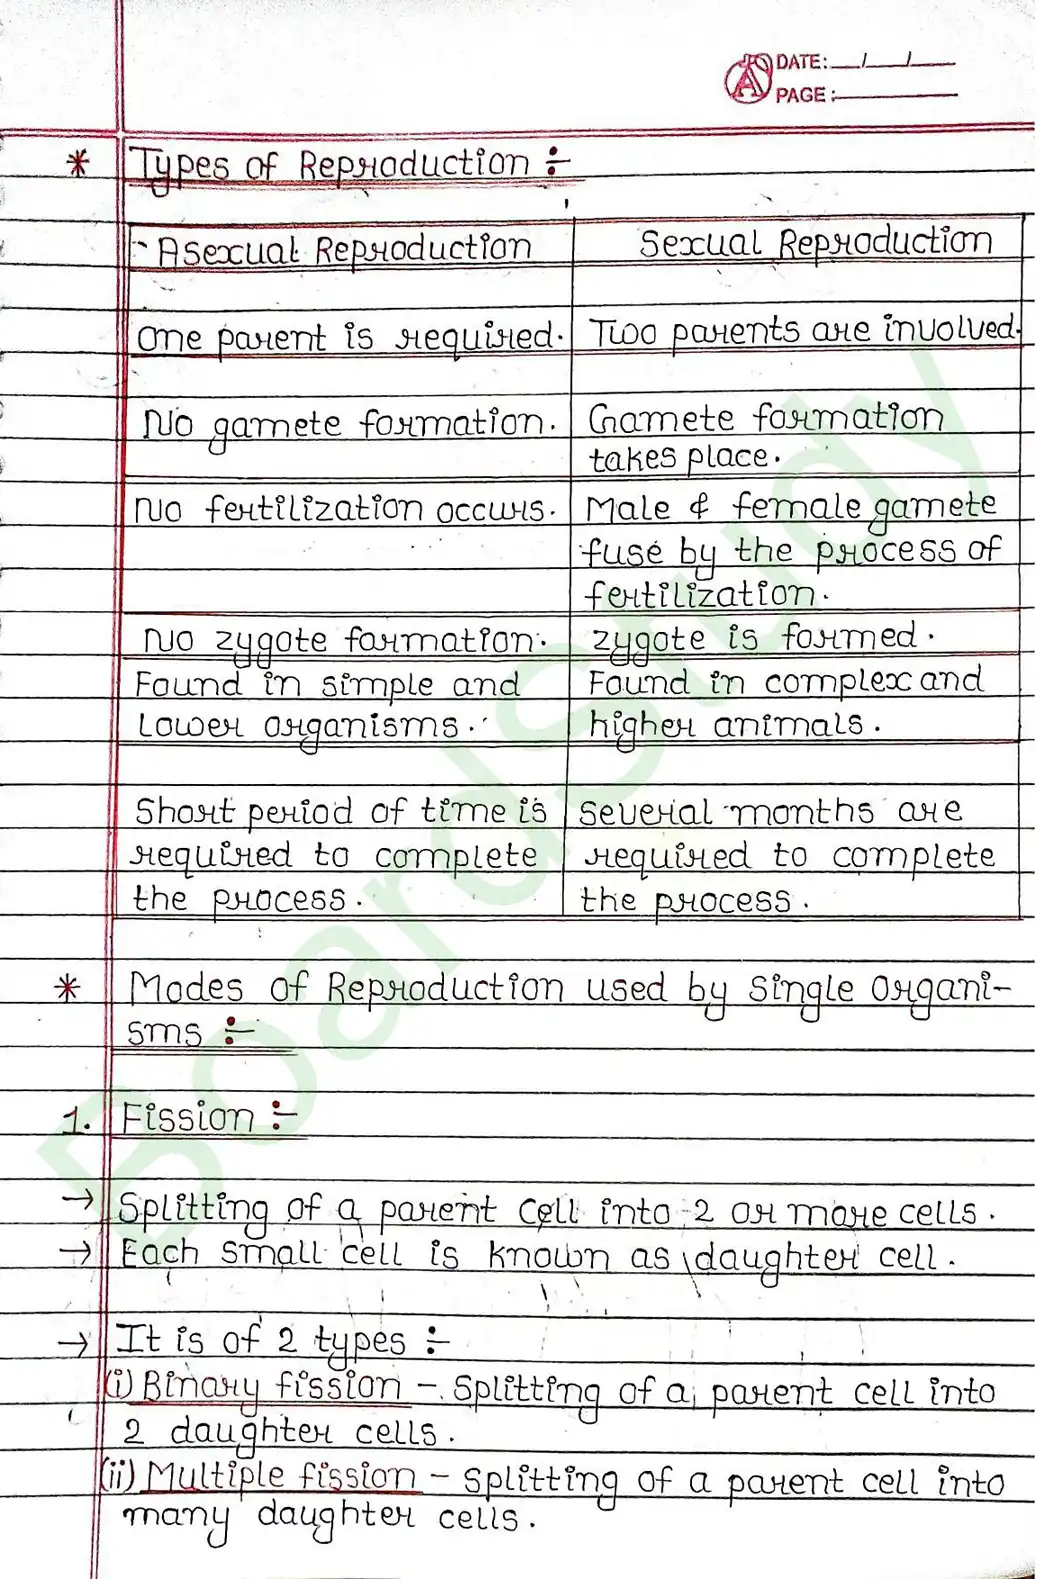 DATE: __/__/__
PAGE:
* Types of Reproduction :-
Asexual Reproduction
Sexual Reproduction
One parent is required.
Two parents are involved.
No gamete formation.
Gamete formation
takes place.
No fertilization occurs.
Male & female gamete
fuse by the process of
fertilization.
No zygote formation.
zygote is formed.
Found in simple and
Lower organisms.
Found in complex and
higher animals.
Short period of time is
required to complete
the process.
Several months are
required to complete
the process.
* Modes of Reproduction used by single organi-
sms :-
1. Fission :-
→ Splitting of a parent cell into 2 or more cells.
→ Each small cell is known as daughter cell.
→ It is of 2 types :-
(i) Binary fission - Splitting of a parent cell into
2 daughter cells.
(ii) Multiple fission - splitting of a parent cell into
many daughter cells.
BoardStudy